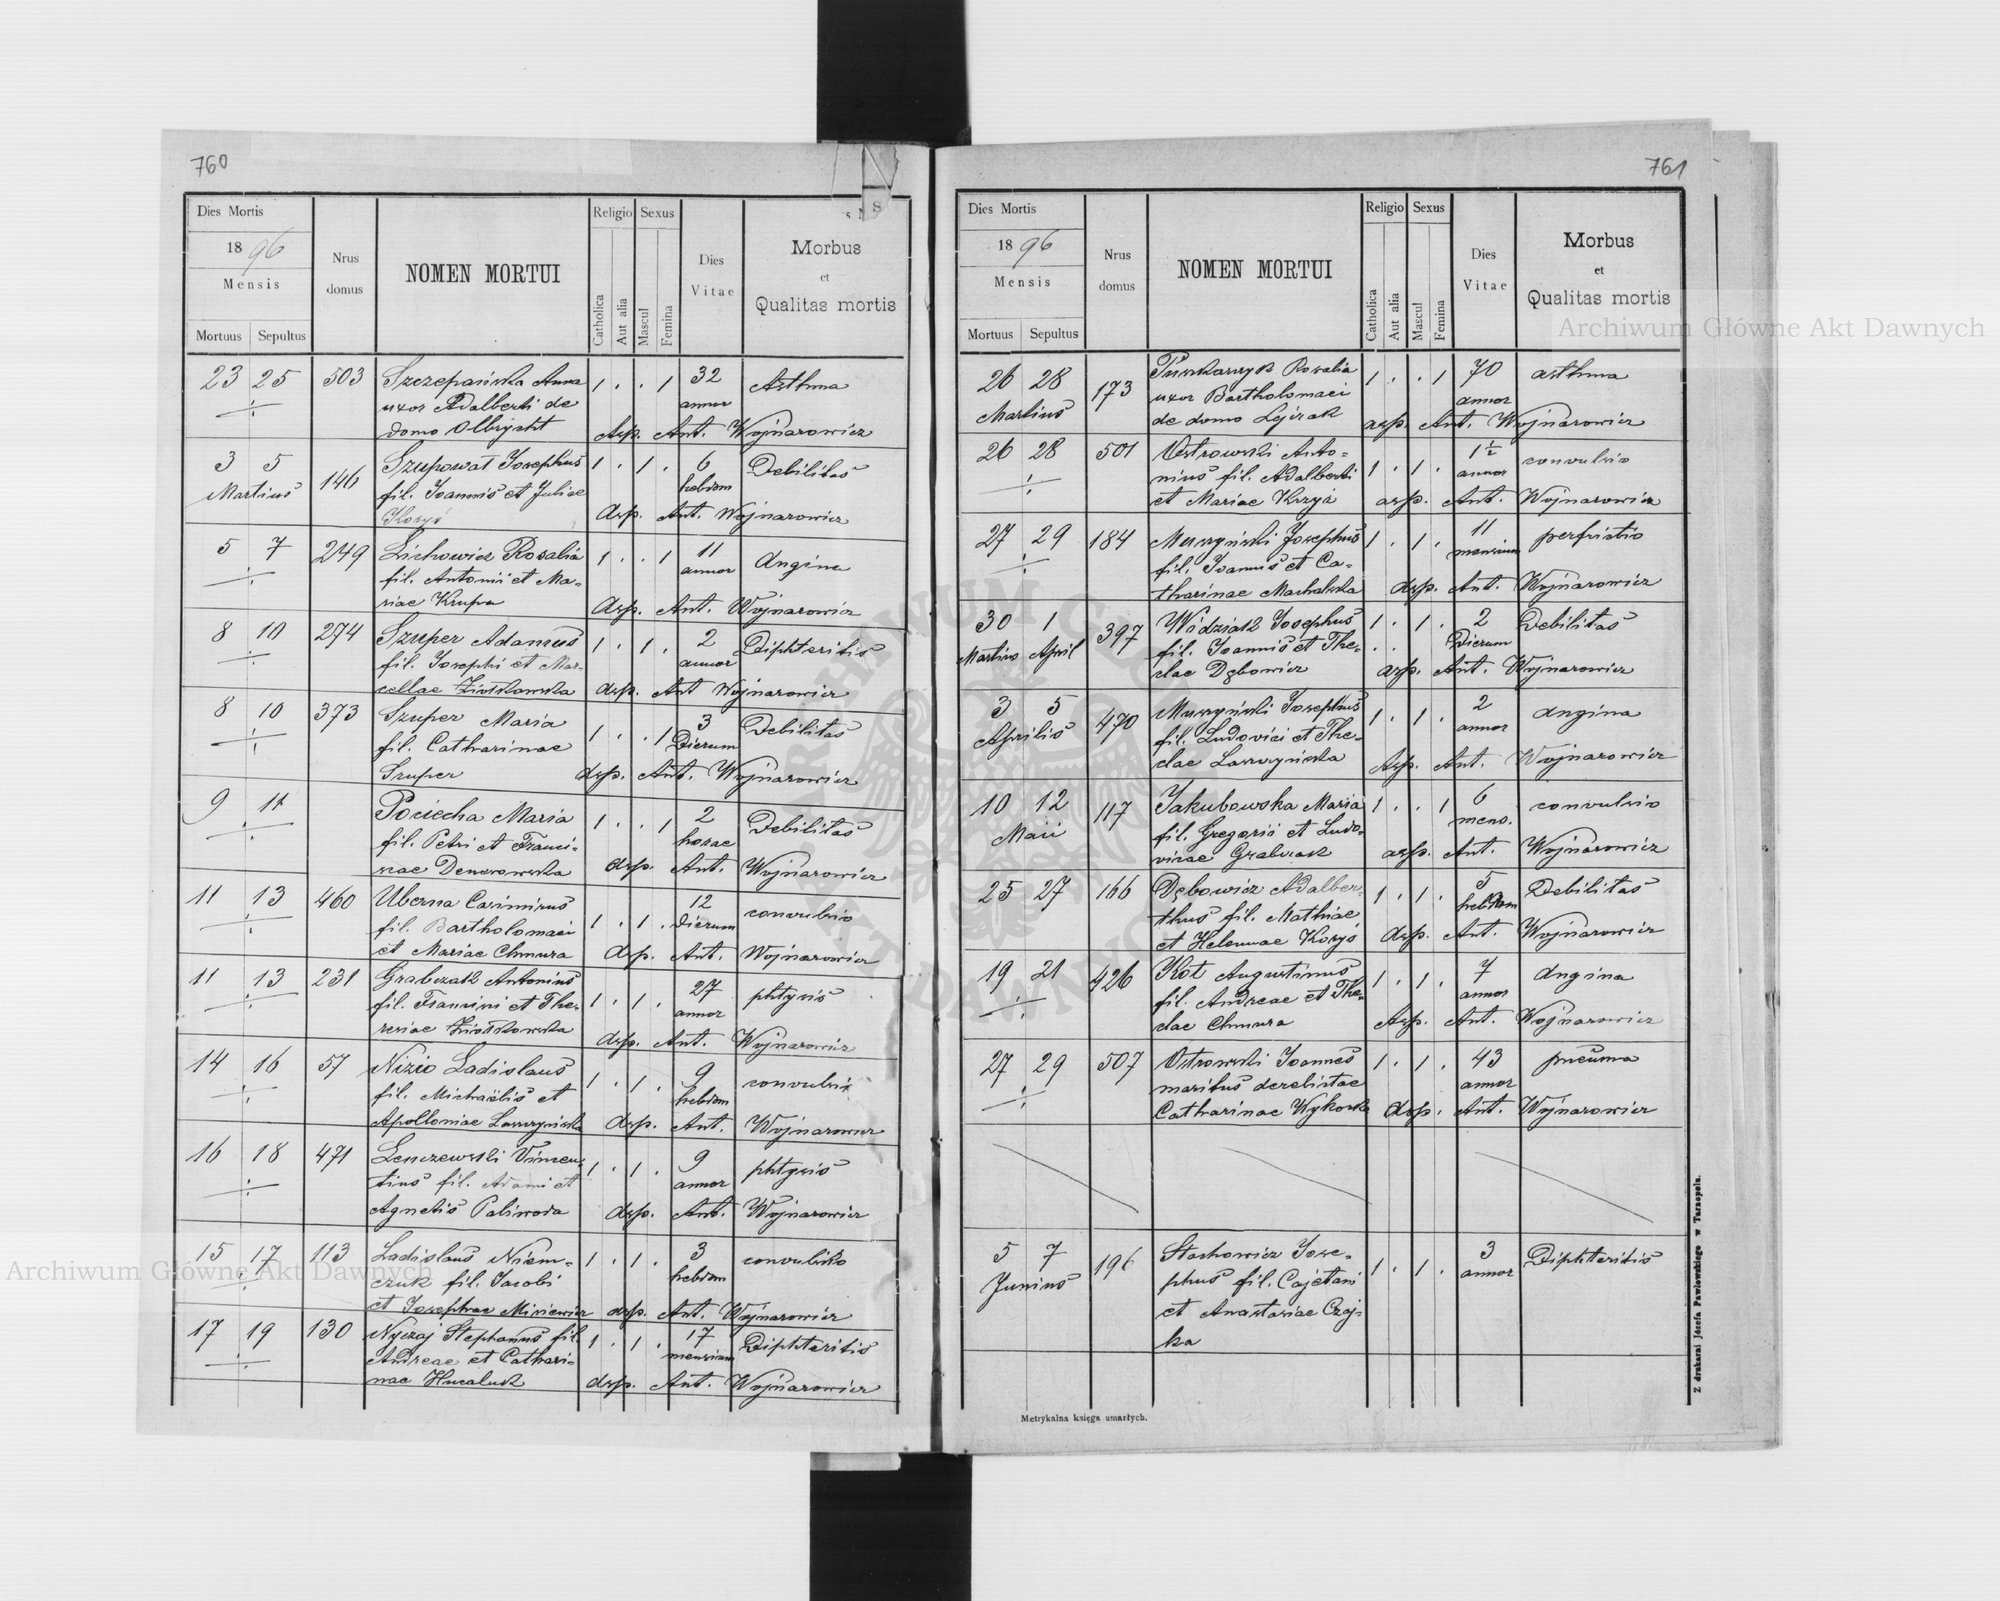 760
Dies Mortis
1896
Mensis
Mortuus Sepultus
Nrus domus
NOMEN MORTUI
Religio
Catholica
Aut alia
Sexus
Mascul
Femina
Dies Vitae
Morbus
et
Qualitas mortis
23 25 503 Szczepańska Anna 1 . . 1 32 Asthma
uxor Adalberti de annor
domo Olbrycht dsp. Ant. Wojnarowicz
3 5 146 Szupował Josephus 1 . 1 . 6 Debilitas
Martius fil. Joannis et Juliae hebdom
Koryś dsp. Ant. Wojnarowicz
5 7 249 Lichowicz Rosalia 1 . . 1 11 Angina
fil. Antonii et Ma- annor
riae Krupa dsp. Ant. Wojnarowicz
8 10 274 Szuper Adamus 1 . 1 . 2 Diphteritis
fil. Josephi et Mar- annor
cellae dsp. Ant Wojnarowicz
8 10 373 Szuper Maria 1 . . 1 3 Debilitas
fil. Catharinae Dierum
Szuper dsp. Ant. Wojnarowicz
9 11 Pociecha Maria 1 . . 1 2 Debilitas
fil. Petri et Franci- horae
scae dsp. Ant. Wojnarowicz
11 13 460 Uberna Casimirus 1 . 1 . 12 convulsio
fil. Bartholomaei Dierum
et Mariae Chmura dsp. Ant. Wojnarowicz
11 13 231 Grabczak Antonius 1 . 1 . 27 phtysis
fil. et The- annor
resiae dsp. Ant. Wojnarowicz
14 16 57 Nizio Ladislaus 1 . 1 . 9 convulsio
fil. Michaëlis et hebdom
Apolloniae Laszczyńska dsp. Ant. Wojnarowicz
16 18 471 Leszczewski Vincen- 1 . 1 . 9 phtysis
tius fil. Adami et annor
Agnetis Paliwoda dsp. Ant. Wojnarowicz
15 17 113 Ladislaus Niem- 1 . 1 . 3 convulsio
czuk fil. Jacobi hebdom
et Josephae Misiewicz dsp. Ant. Wojnarowicz
17 19 130 Nyczaj Stephanus fil. 1 . 1 . 17 Diphteritis
Andreae et Cathari- mensium
nae Hucaluk dsp. Ant. Wojnarowicz
761
Dies Mortis
1896
Mensis
Mortuus Sepultus
Nrus domus
NOMEN MORTUI
Religio
Catholica
Aut alia
Sexus
Mascul
Femina
Dies Vitae
Morbus
et
Qualitas mortis
26 28 173 Puszkarczyk Rosalia 1 . . 1 70 asthma
Martius uxor Bartholomaei annor
de domo Lejzak dsp. Ant. Wojnarowicz
26 28 501 Ostrowski Anto- 1 . 1 . 1½ convulsio
nius fil. Adalberti annor
et Mariae dsp. Ant. Wojnarowicz
27 29 184 Muszyński Josephus 1 . 1 . 11 perfrictio
fil. Joannis et Ca- mensium
tharinae Machalska dsp. Ant. Wojnarowicz
30 1 397 Widziak Josephus 1 . 1 . 2 Debilitas
Martius April fil. Joannis et The- Dierum
clae Dębowicz dsp. Ant. Wojnarowicz
3 5 470 Muszyński Josephus 1 . 1 . 2 Angina
Aprilis fil. Ludovici et The- annor
clae Laszczyńska dsp. Ant. Wojnarowicz
10 12 117 Jakubowska Maria 1 . . 1 6 convulsio
Maii fil. Gregorii et Ludo- mens.
vicae Grabczak dsp. Ant. Wojnarowicz
25 27 166 Dębowicz Adalber- 1 . 1 . 5 Debilitas
thus fil. Mathiae hebdom
et Helennae Koryś dsp. Ant. Wojnarowicz
19 21 426 Kot Augustinus 1 . 1 . 7 Angina
fil. Andreae et The- annor
clae Chmura dsp. Ant. Wojnarowicz
27 29 507 Ostrowski Joannes 1 . 1 . 43 pneuma
maritus derelictae annor
Catharinae Wykowska dsp. Ant. Wojnarowicz
5 7 196 Stachowicz Jose- 1 . 1 . 3 Diphtteritis
Junius phus fil. Cajetani annor
et Anastasiae Czaj-
ka
Metrykalna księga umarłych.
Z drukarni Józefa Pawłowskiego w Tarnopolu.
Archiwum Główne Akt Dawnych
Archiwum Główne Akt Dawnych
ARCHIWUM GŁÓWNE AKT DAWNYCH